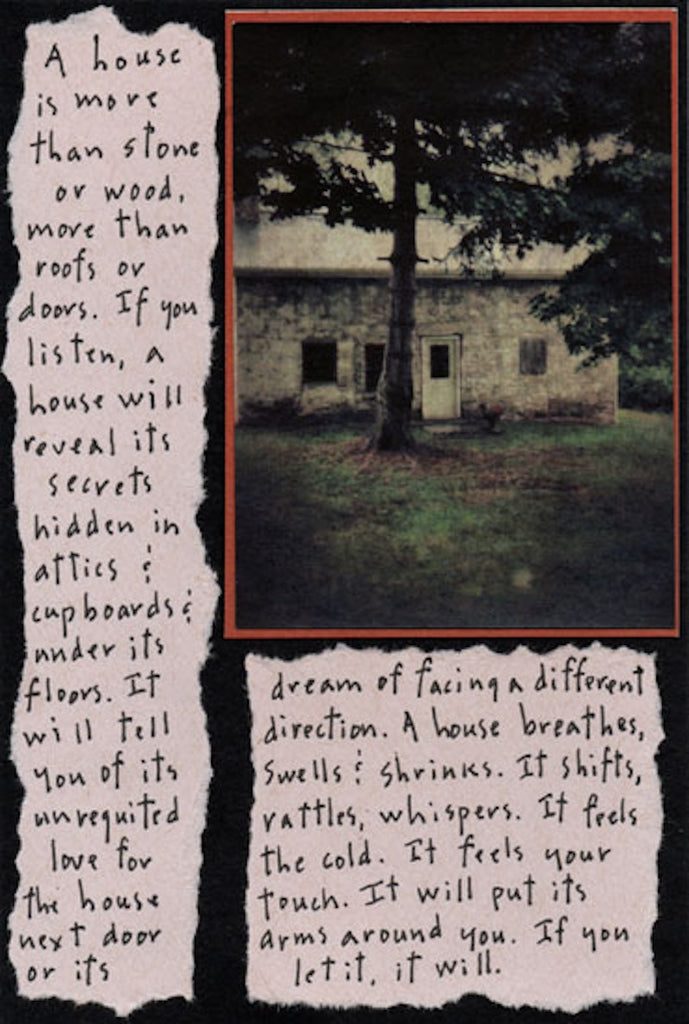 A house
is more
than stone
or wood,
more than
roofs or
doors. If you
listen, a
house will
reveal its
secrets
hidden in
attics &
cupboards &
under its
floors. It
will tell
you of its
unrequited
love for
the house
next door
or its
dream of facing a different
direction. A house breathes,
swells & shrinks. It shifts,
rattles, whispers. It feels
the cold. It feels your
touch. It will put its
arms around you. If you
let it, it will.